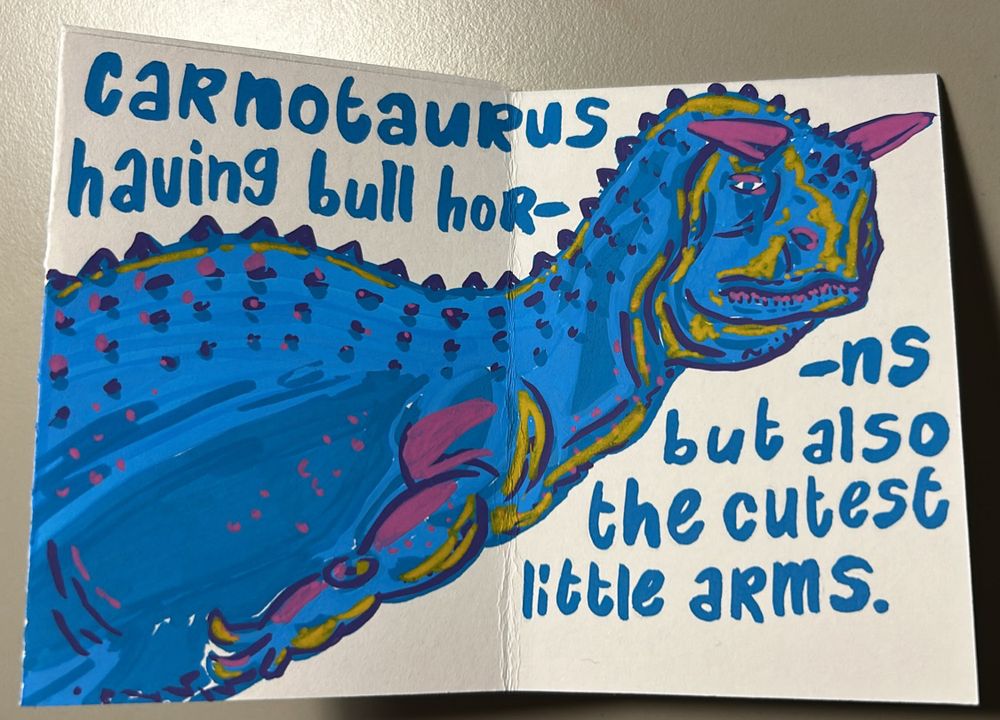 CaRnotauRus
having bull hoR-
-ns
but also
the cutest
little aRms.